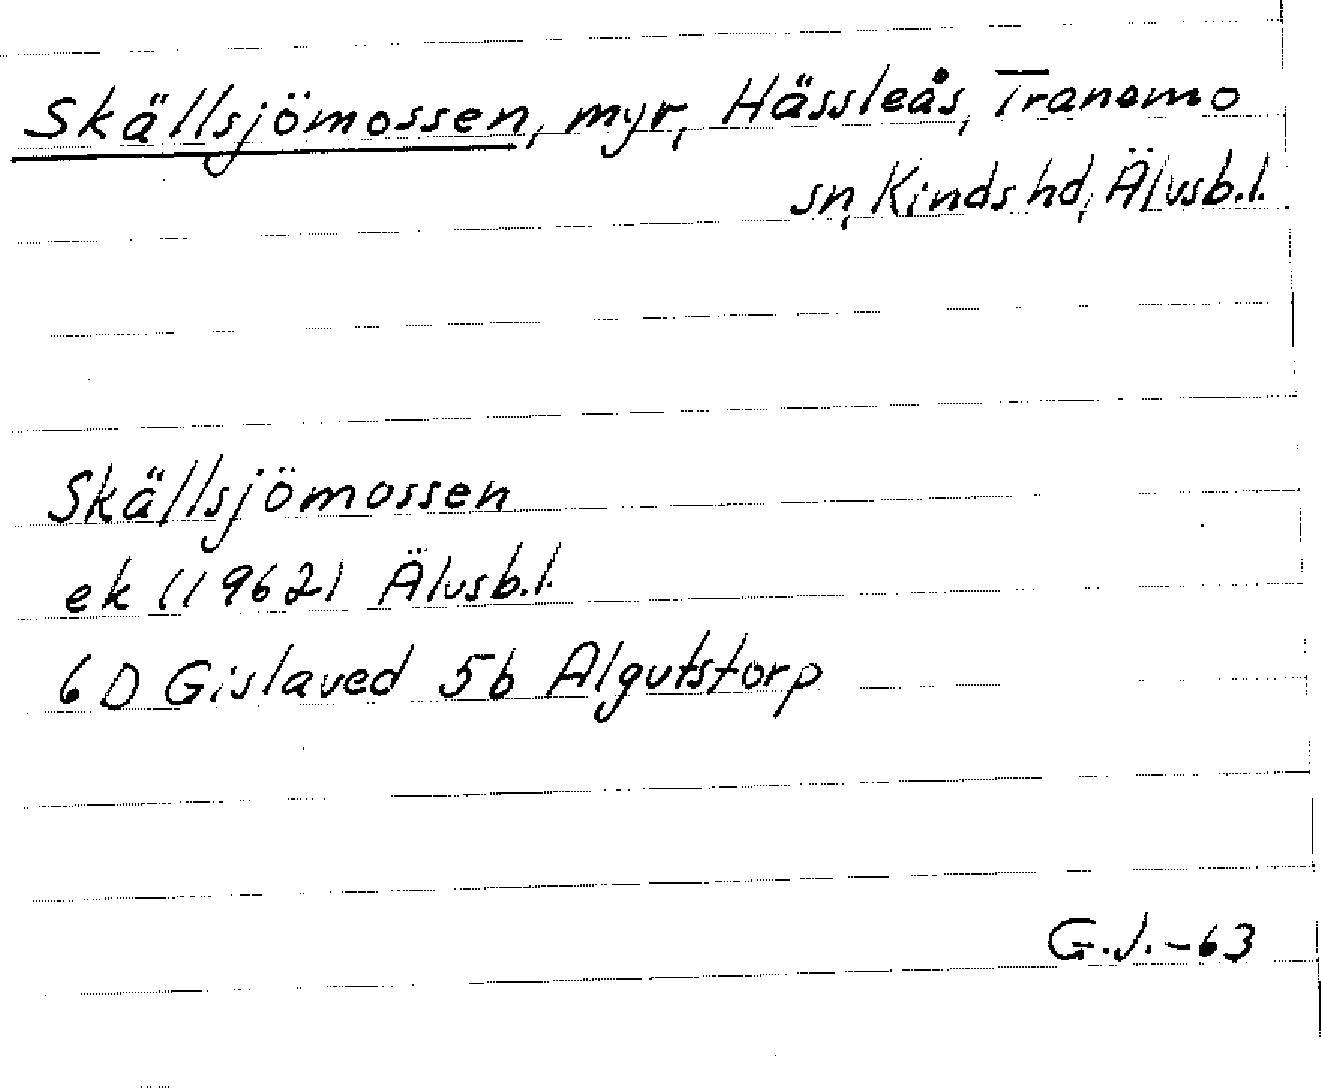 Skällsjömossen, myr, Hässleås, Tranemo
sn, Kinds hd, Älvsb.l.
Skällsjömossen
ek (1962) Älvsb.l.
6D Gislaved 5b Algutstorp
G.J.-63